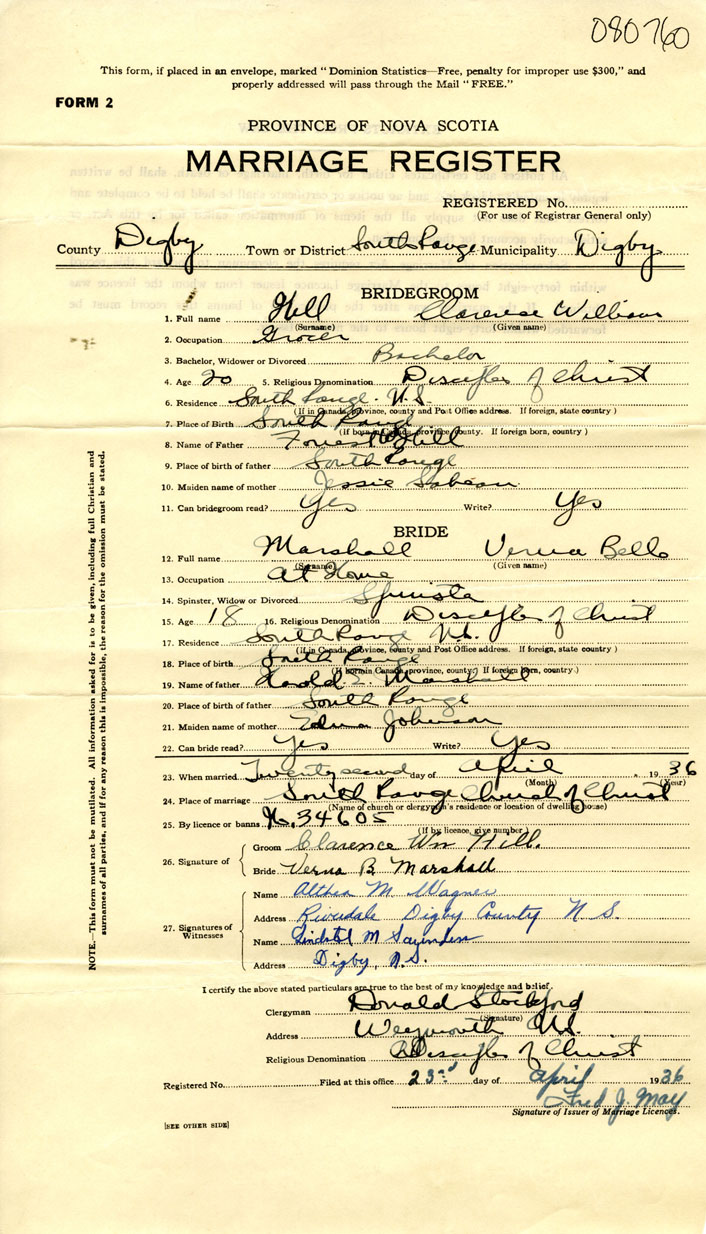 080760
This form, if placed in an envelope, marked "Dominion Statistics—Free, penalty for improper use $300," and
properly addressed will pass through the Mail "FREE."
FORM 2
PROVINCE OF NOVA SCOTIA
MARRIAGE REGISTER
REGISTERED No.
(For use of Registrar General only)
County Digby Town or District South Range Municipality Digby
BRIDEGROOM
1. Full name Hill Clarence William
(Surname) (Given name)
2. Occupation Grocer
3. Bachelor, Widower or Divorced Bachelor
4. Age 20 5. Religious Denomination Disciples of Christ
6. Residence South Range. N.S.
(If in Canada, province, county and Post Office address. If foreign, state country)
7. Place of Birth South Range
(If born in Canada, province, county. If foreign born, country)
8. Name of Father Forrest Hill
9. Place of birth of father South Range
10. Maiden name of mother Jessie Sabean
11. Can bridegroom read? Yes Write? Yes
BRIDE
12. Full name Marshall Verna Belle
(Surname) (Given name)
13. Occupation At Home
14. Spinster, Widow or Divorced Spinster
15. Age 18 16. Religious Denomination Disciples of Christ
17. Residence South Range N.S.
(If in Canada, province, county and Post Office address. If foreign, state country)
18. Place of birth South Range
(If born in Canada, province, county. If foreign born, country.)
19. Name of father Harold Marshall
20. Place of birth of father South Range
21. Maiden name of mother Edna Johnson
22. Can bride read? Yes Write? Yes
23. When married Twenty second day of April 1936
(Month) (Year)
24. Place of marriage South Range Church of Christ
(Name of church or clergymen's residence or location of dwelling house)
25. By licence or banns No. 34605
(If by licence, give number)
26. Signature of
Groom Clarence Wm Hill.
Bride Verna B. Marshall
27. Signatures of Witnesses
Name Althea M. Wagner
Address Riverdale Digby County N.S.
Name M Saunders
Address Digby, N.S.
I certify the above stated particulars are true to the best of my knowledge and belief.
Clergyman Donald Stockford
(Signature)
Address Weymouth N.S.
Religious Denomination Disciples of Christ
Registered No. Filed at this office 23rd day of April 1936
Fred J. May
Signature of Issuer of Marriage Licences.
[SEE OTHER SIDE]
NOTE.—This form must not be mutilated. All information asked for is to be given, including full Christian and
surnames of all parties, and if for any reason this is impossible, the reason for the omission must be stated.